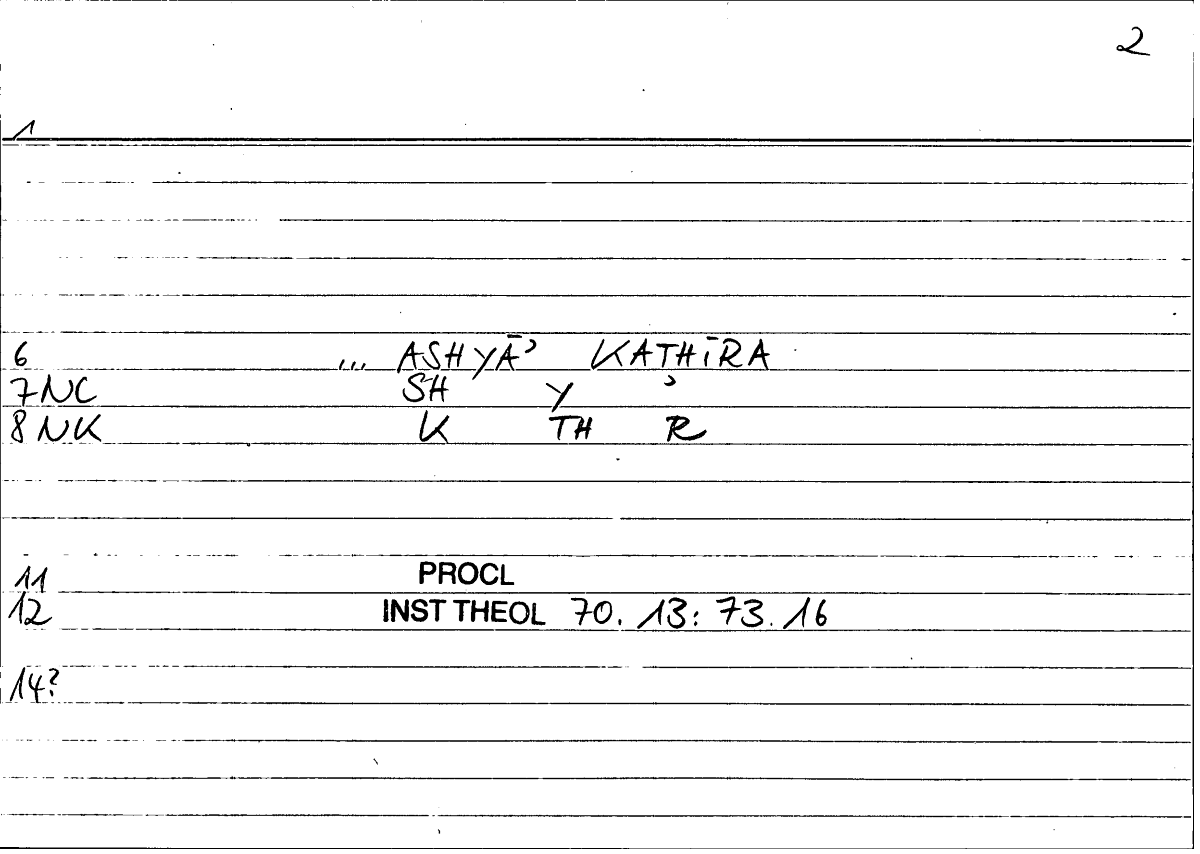 2
1
6 ... ASHYĀʾ KATHĪRA
7NC SH Y ʾ
8NK K TH R
11 PROCL
12 INST THEOL 70. 13: 73. 16
14?